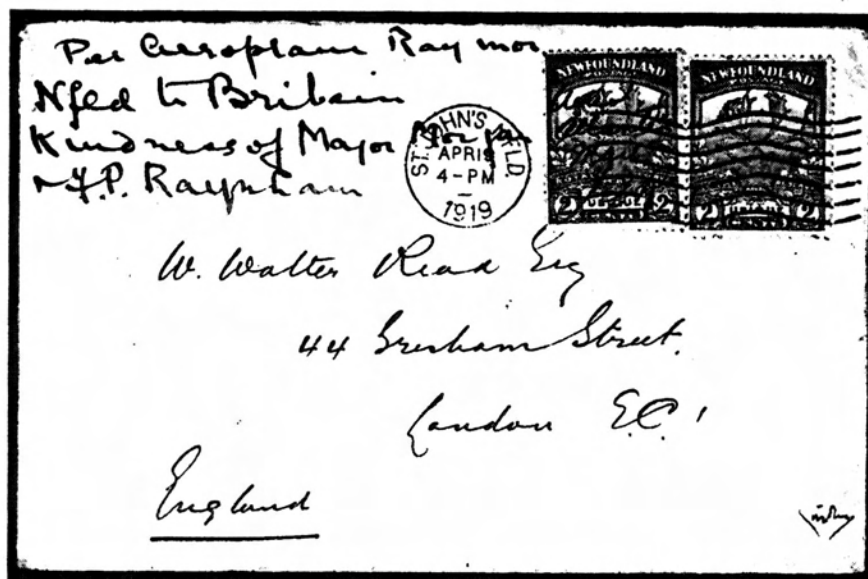 Per Aeroplane Raymor
Nfld to Britain
Kindness of Major Morgan
& F.P. Raynham
ST. JOHN'S NFLD.
APR 19
4-PM
1919
NEWFOUNDLAND
2 CENTS 2
NEWFOUNDLAND
2 CENTS 2
W. Walter Read Esq
44 Gresham Street.
London E.C.1
England